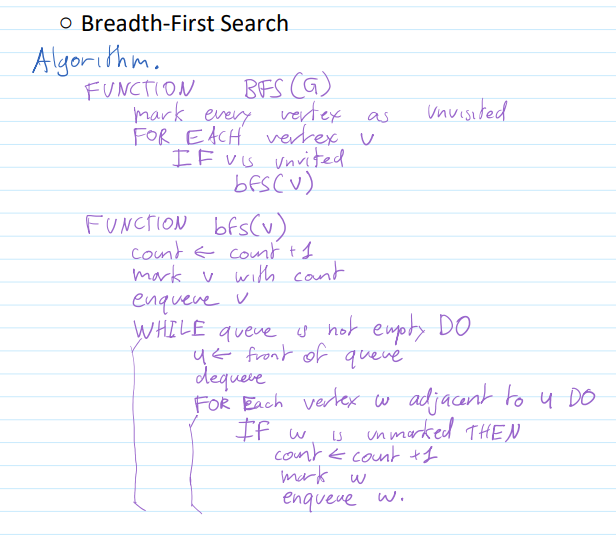 ○ Breadth-First Search
Algorithm.
FUNCTION BFS(G)
mark every vertex as unvisited
FOR EACH vertex v
IF v is unvited
bfs(v)
FUNCTION bfs(v)
count ← count + 1
mark v with count
enqueue v
WHILE queue is not empty DO
u ← front of queue
dequeue
FOR Each vertex w adjacent to u DO
IF w is unmarked THEN
count ← count + 1
mark w
enqueue w.